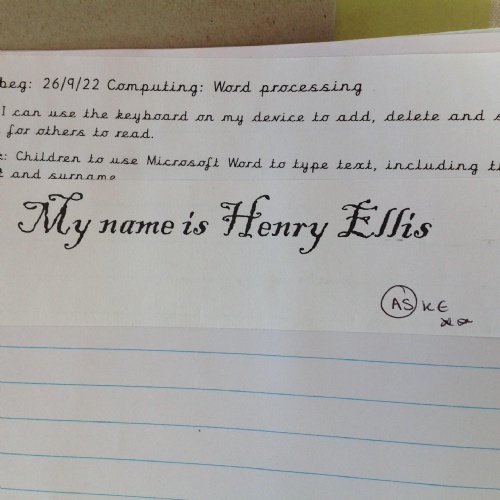 beg: 26/9/22 Computing: Word processing
I can use the keyboard on my device to add, delete and
for others to read.
Children to use Microsoft Word to type text, including
and surname
My name is Henry Ellis
AS KE